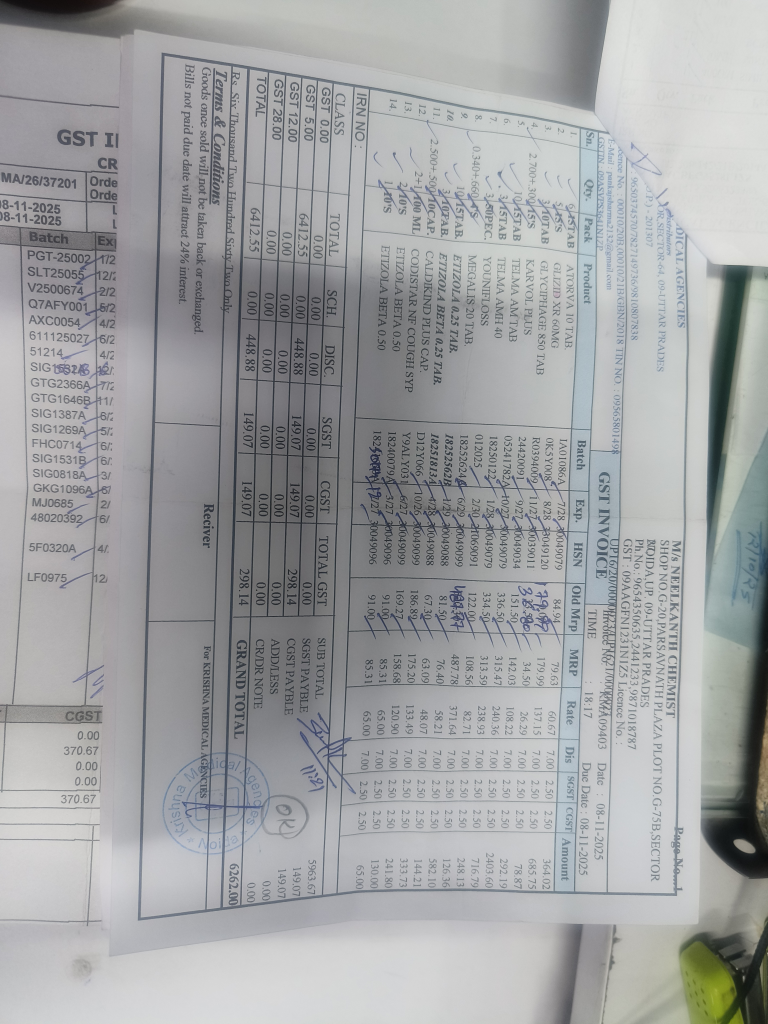 Page No...1
M/s NEELKANTH CHEMIST
SHOP NO.G-20,PARSAVNATH PLAZA PLOT NO.G-75B,SECTOR
NOIDA,UP, 09-UTTAR PRADES
Ph.No : 9654350635,2441233,9871018787
GST : 09AAGFN1231N1Z5 Licence No. :
MEDICAL AGENCIES
SECTOR-64, 09-UTTAR PRADES
(U.P.) - 201307
9650374570/7827149736/9810807838
TIN NO. : 09565801498
E-Mail : pankajsharma2112@gmail.com
GST INVOICE
Invoice No. : KMA09403 Date : 08-11-2025
TIME : 18:17 Due Date : 08-11-2025
Sn. Qty. Pack Product Batch Exp. HSN Old Mrp MRP Rate Dis SGST CGST Amount
1. ATORVA 10 TAB IA01086A 7/28 30049079 84.94 79.63 60.67 7.00 2.50 2.50 364.02
2. GLIZID XR 60MG 0K5Y008 8/28 30049120 179.99 137.15 7.00 2.50 2.50 685.75
3. GLYCIPHAGE 850 TAB R0394009 11/27 34.50 26.29 7.00 2.50 2.50 78.87
4. 2.700+.300 KARVOL PLUS 2442009 9/27 151.50 142.03 108.22 7.00 2.50 2.50 292.19
5. TELMA AM TAB 05241782A 10/27 30049079 336.50 315.47 240.36 7.00 2.50 2.50 2403.60
6. TELMA AMH 40 1/28 30049079 334.50 313.59 238.93 7.00 2.50 2.50 716.79
7. YOUNIFLOSS 012025 2/30 122.00 108.56 82.71 7.00 2.50 2.50 248.13
8. 0.340+.660 MEGALIS 20 TAB 6/29 30049099 487.78 371.64 7.00 2.50 2.50 126.36
9. ETIZOLA 0.25 TAB. 18252562B 1/29 30049088 81.50 76.40 58.21 7.00 2.50 2.50 582.10
10. ETIZOLA BETA 0.25 TAB. 18251813A 4/28 67.30 63.09 48.07 7.00 2.50 2.50 144.21
11. 2.500+.500 CALDIKIND PLUS CAP D12Y066 10/26 30049099 186.89 175.20 133.49 7.00 2.50 2.50 333.73
12. 2+1 100 ML CODISTAR NF COUGH SYP Y9ALY031 6/27 30049099 169.27 158.68 120.90 7.00 2.50 2.50 241.80
13. ETIZOLA BETA 0.50 18240079A 3/27 30049096 91.00 85.31 65.00 7.00 2.50 2.50 130.00
14. 10'S ETIZOLA BETA 0.50 30049096 91.00 85.31 65.00 7.00 2.50 2.50 65.00
IRN NO :
CLASS TOTAL SCH. DISC. SGST CGST TOTAL GST
GST 0.00 0.00 0.00 0.00 0.00 0.00 0.00
GST 5.00 6412.55 0.00 448.88 149.07 149.07 298.14
GST 12.00 0.00 0.00 0.00 0.00 0.00 0.00
GST 28.00 0.00 0.00 0.00 0.00 0.00 0.00
TOTAL 6412.55 0.00 448.88 149.07 149.07 298.14
SUB TOTAL 5963.67
SGST PAYBLE 149.07
CGST PAYBLE 149.07
ADD/LESS 0.00
CR/DR NOTE 0.00
GRAND TOTAL 6262.00
OK
Rs. Six Thousand Two Hundred Sixty Two Only
Terms & Conditions
Goods once sold will not be taken back or exchanged.
Bills not paid due date will attract 24% interest.
Reciver
For KRISHNA MEDICAL AGENCIES
Krishna Medical Agencies
GST I
CR
MA/26/37201 Orde
Orde
08-11-2025
08-11-2025
Batch Exp
PGT-25002 1/2
SLT25055 12/2
V2500674
Q7AFY001
AXC0054 4/2
611125027 6/2
51214 4/2
GTG2366A 7/2
GTG1646B 11/
SIG1387A 8/
SIG1269A 5/
FHC0714 6/
SIG1531B 6/
SIG0818A 3/
GKG1096A
MJ0685 2/
48020392 6/
5F0320A 4/
LF0975 12/
CGST
0.00
370.67
0.00
0.00
370.67